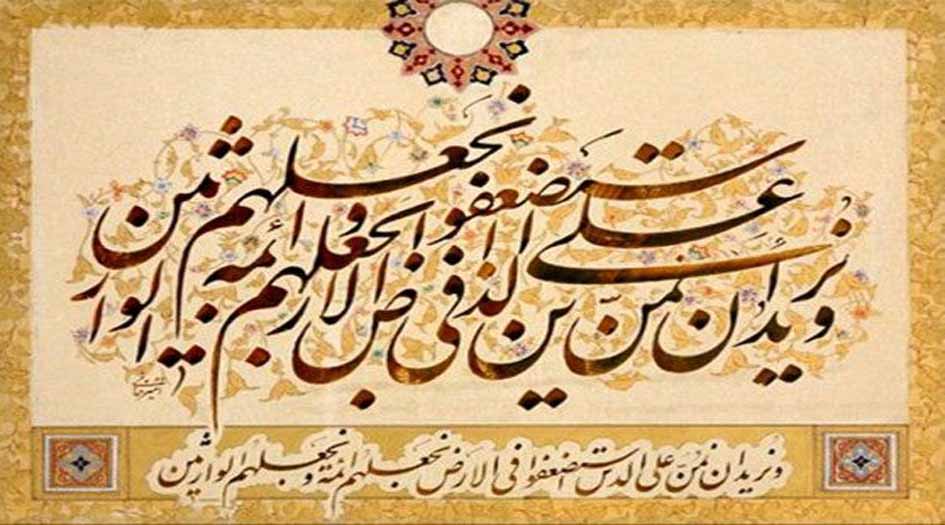 و نرید ان نمنّ علی الذین استضعفوا فی الارض و نجعلهم ائمه و نجعلهم الوارثین
ونرید ان نمنّ علی الذین استضعفوا فی الارض نجعلهم ائمة و نجعلهم الوارثین